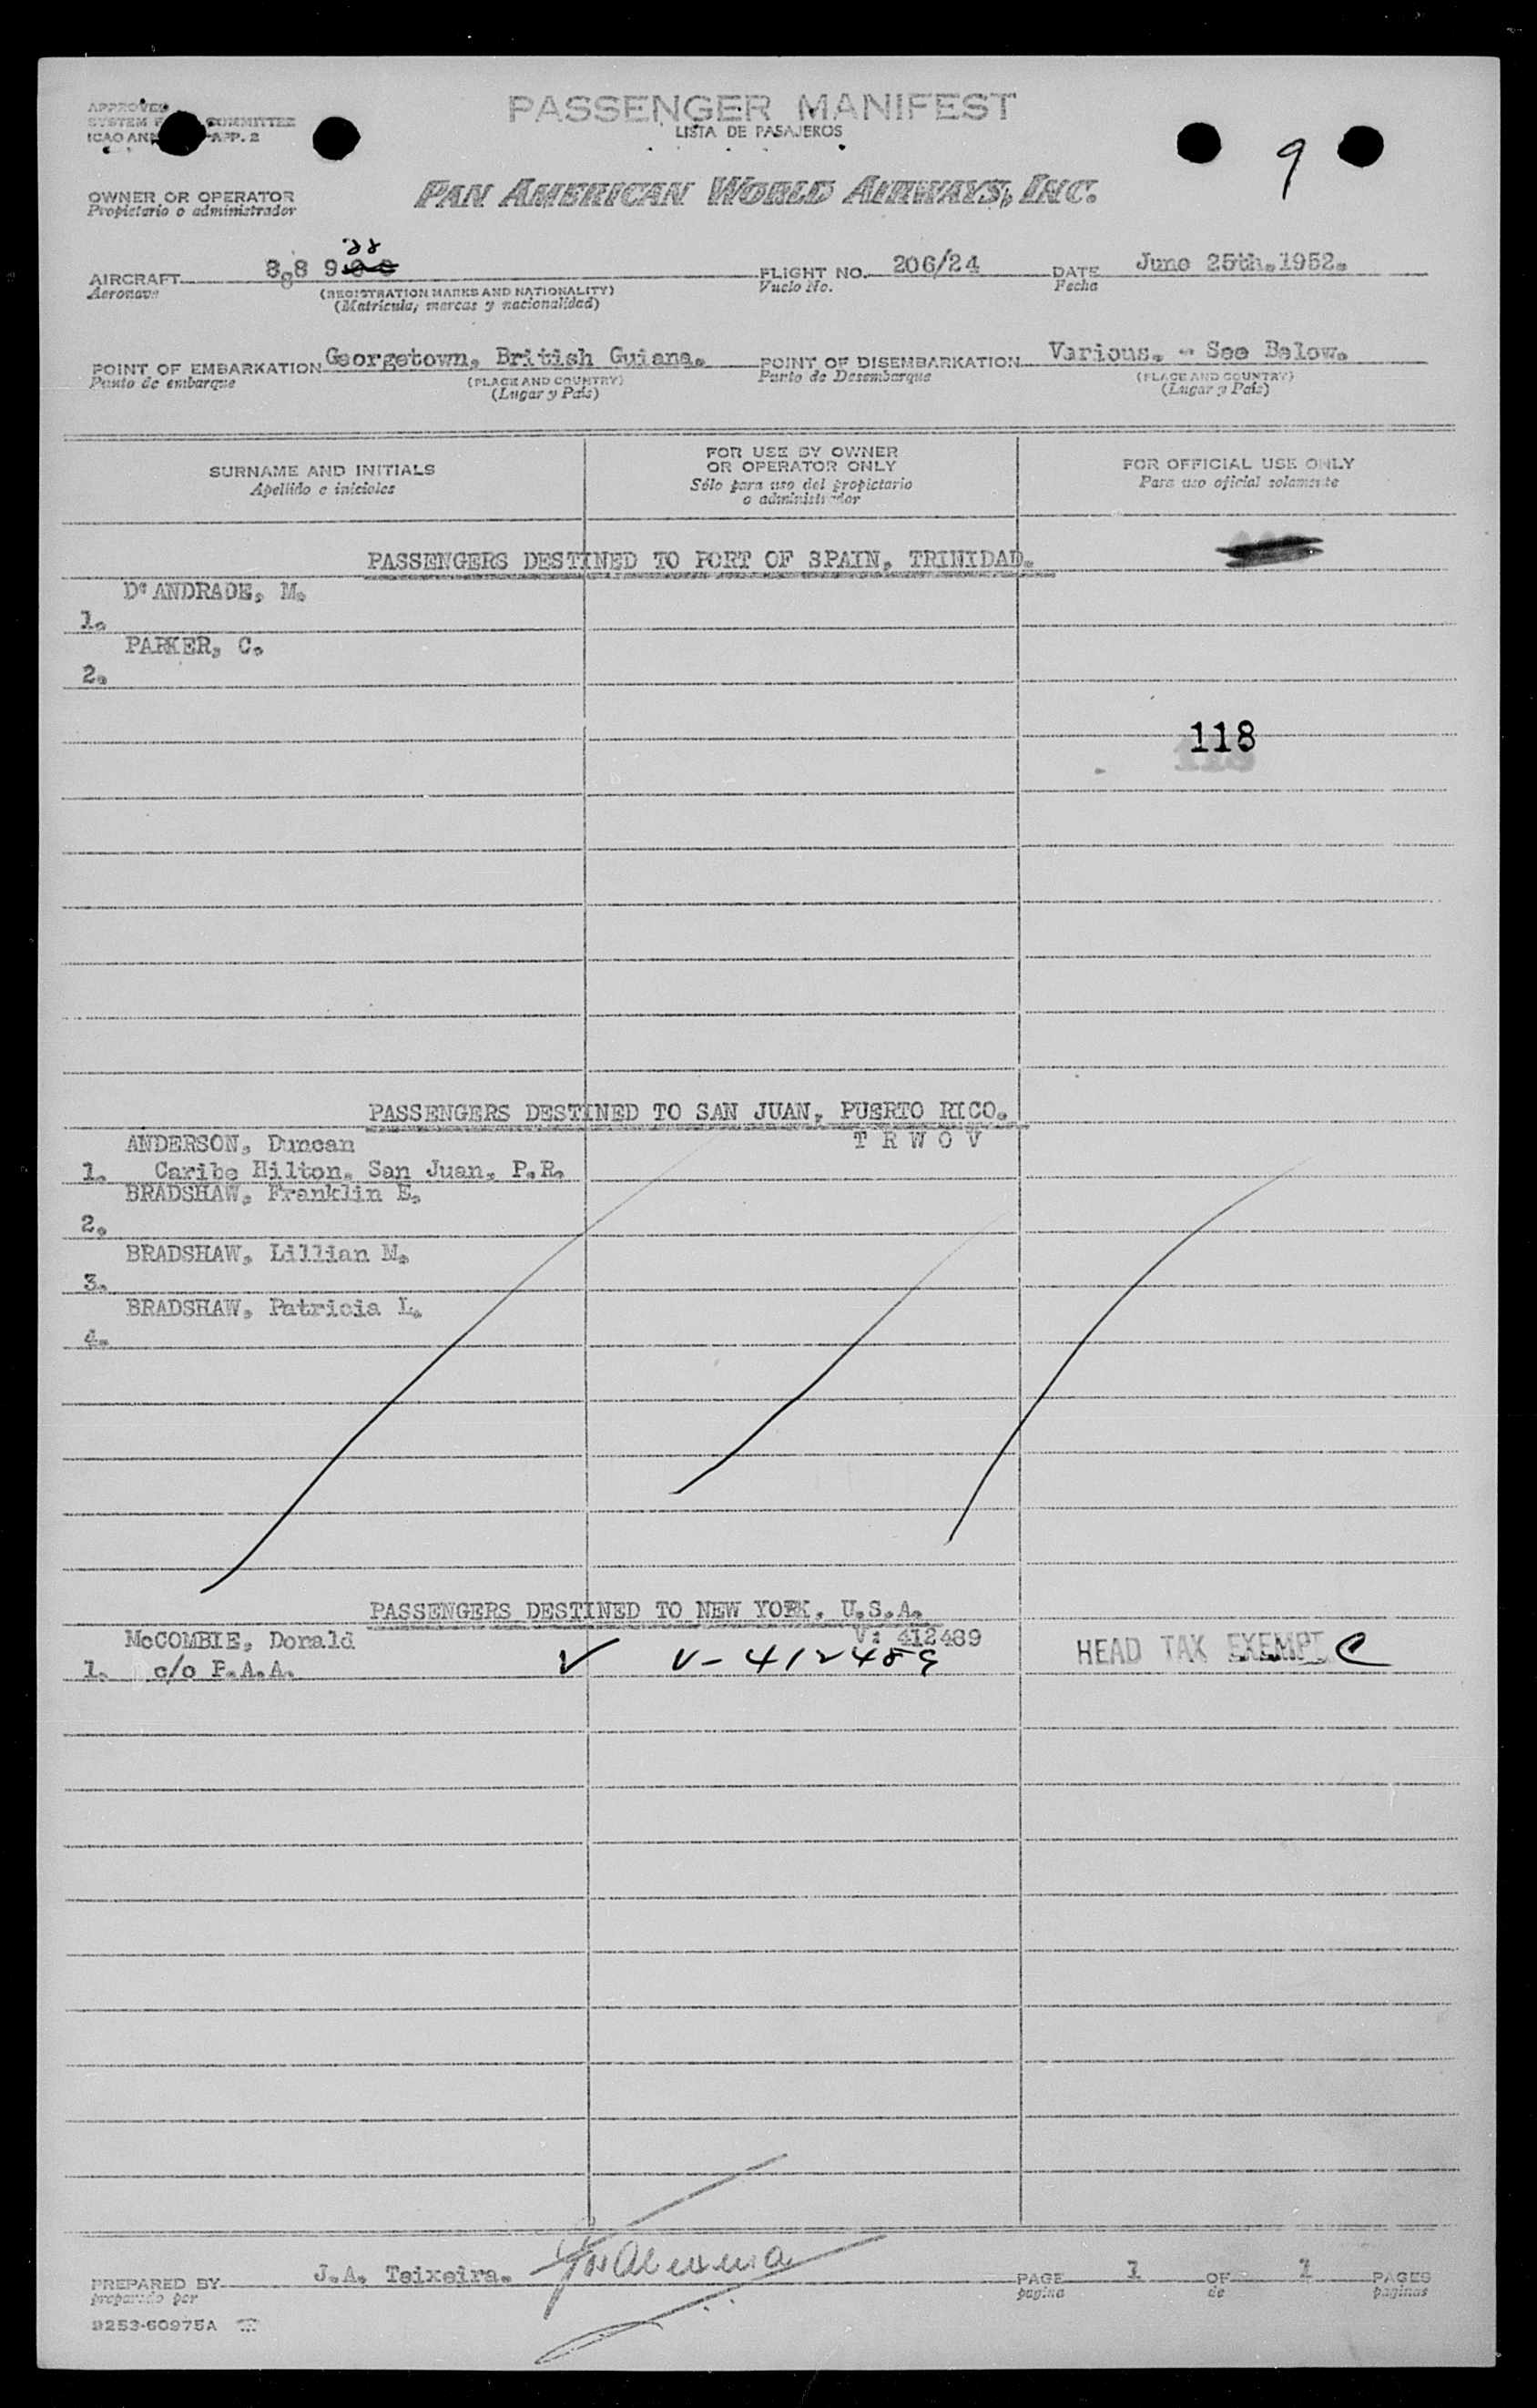 APPROVED
SYSTEM COMMITTEE
ICAO APP. 2
PASSENGER MANIFEST
LISTA DE PASAJEROS
9
OWNER OR OPERATOR
Propietario o administrador
PAN AMERICAN WORLD AIRWAYS, INC.
AIRCRAFT 888 9 88 FLIGHT NO. 206/24 DATE June 25th.1952.
Aeronave (REGISTRATION MARKS AND NATIONALITY) Vuelo No. Fecha
(Matricula, marcas y nacionalidad)
POINT OF EMBARKATION Georgetown, British Guiana. POINT OF DISEMBARKATION Various. - See Below.
Punto de embarque (PLACE AND COUNTRY) Punto de Desembarque (PLACE AND COUNTRY)
(Lugar y País) (Lugar y País)
SURNAME AND INITIALS
Apellido e iniciales
FOR USE BY OWNER
OR OPERATOR ONLY
Sólo para uso del propietario
o administrador
FOR OFFICIAL USE ONLY
Para uso oficial solamente
PASSENGERS DESTINED TO PORT OF SPAIN, TRINIDAD.
D'ANDRADE, M.
1.
PARKER, C.
2.
118
PASSENGERS DESTINED TO SAN JUAN, PUERTO RICO.
ANDERSON, Duncan T R W O V
1. Caribe Hilton, San Juan, P.R.
BRADSHAW, Franklin E.
2.
BRADSHAW, Lillian M.
3.
BRADSHAW, Patricia L.
4.
PASSENGERS DESTINED TO NEW YORK, U.S.A.
McCOMBIE, Donald V: 412489
1. c/o P.A.A. V V-412489 HEAD TAX EXEMPT C
PREPARED BY J.A. Teixeira. PAGE 1 OF 1 PAGES
preparado por pagina de paginas
9253-60975A